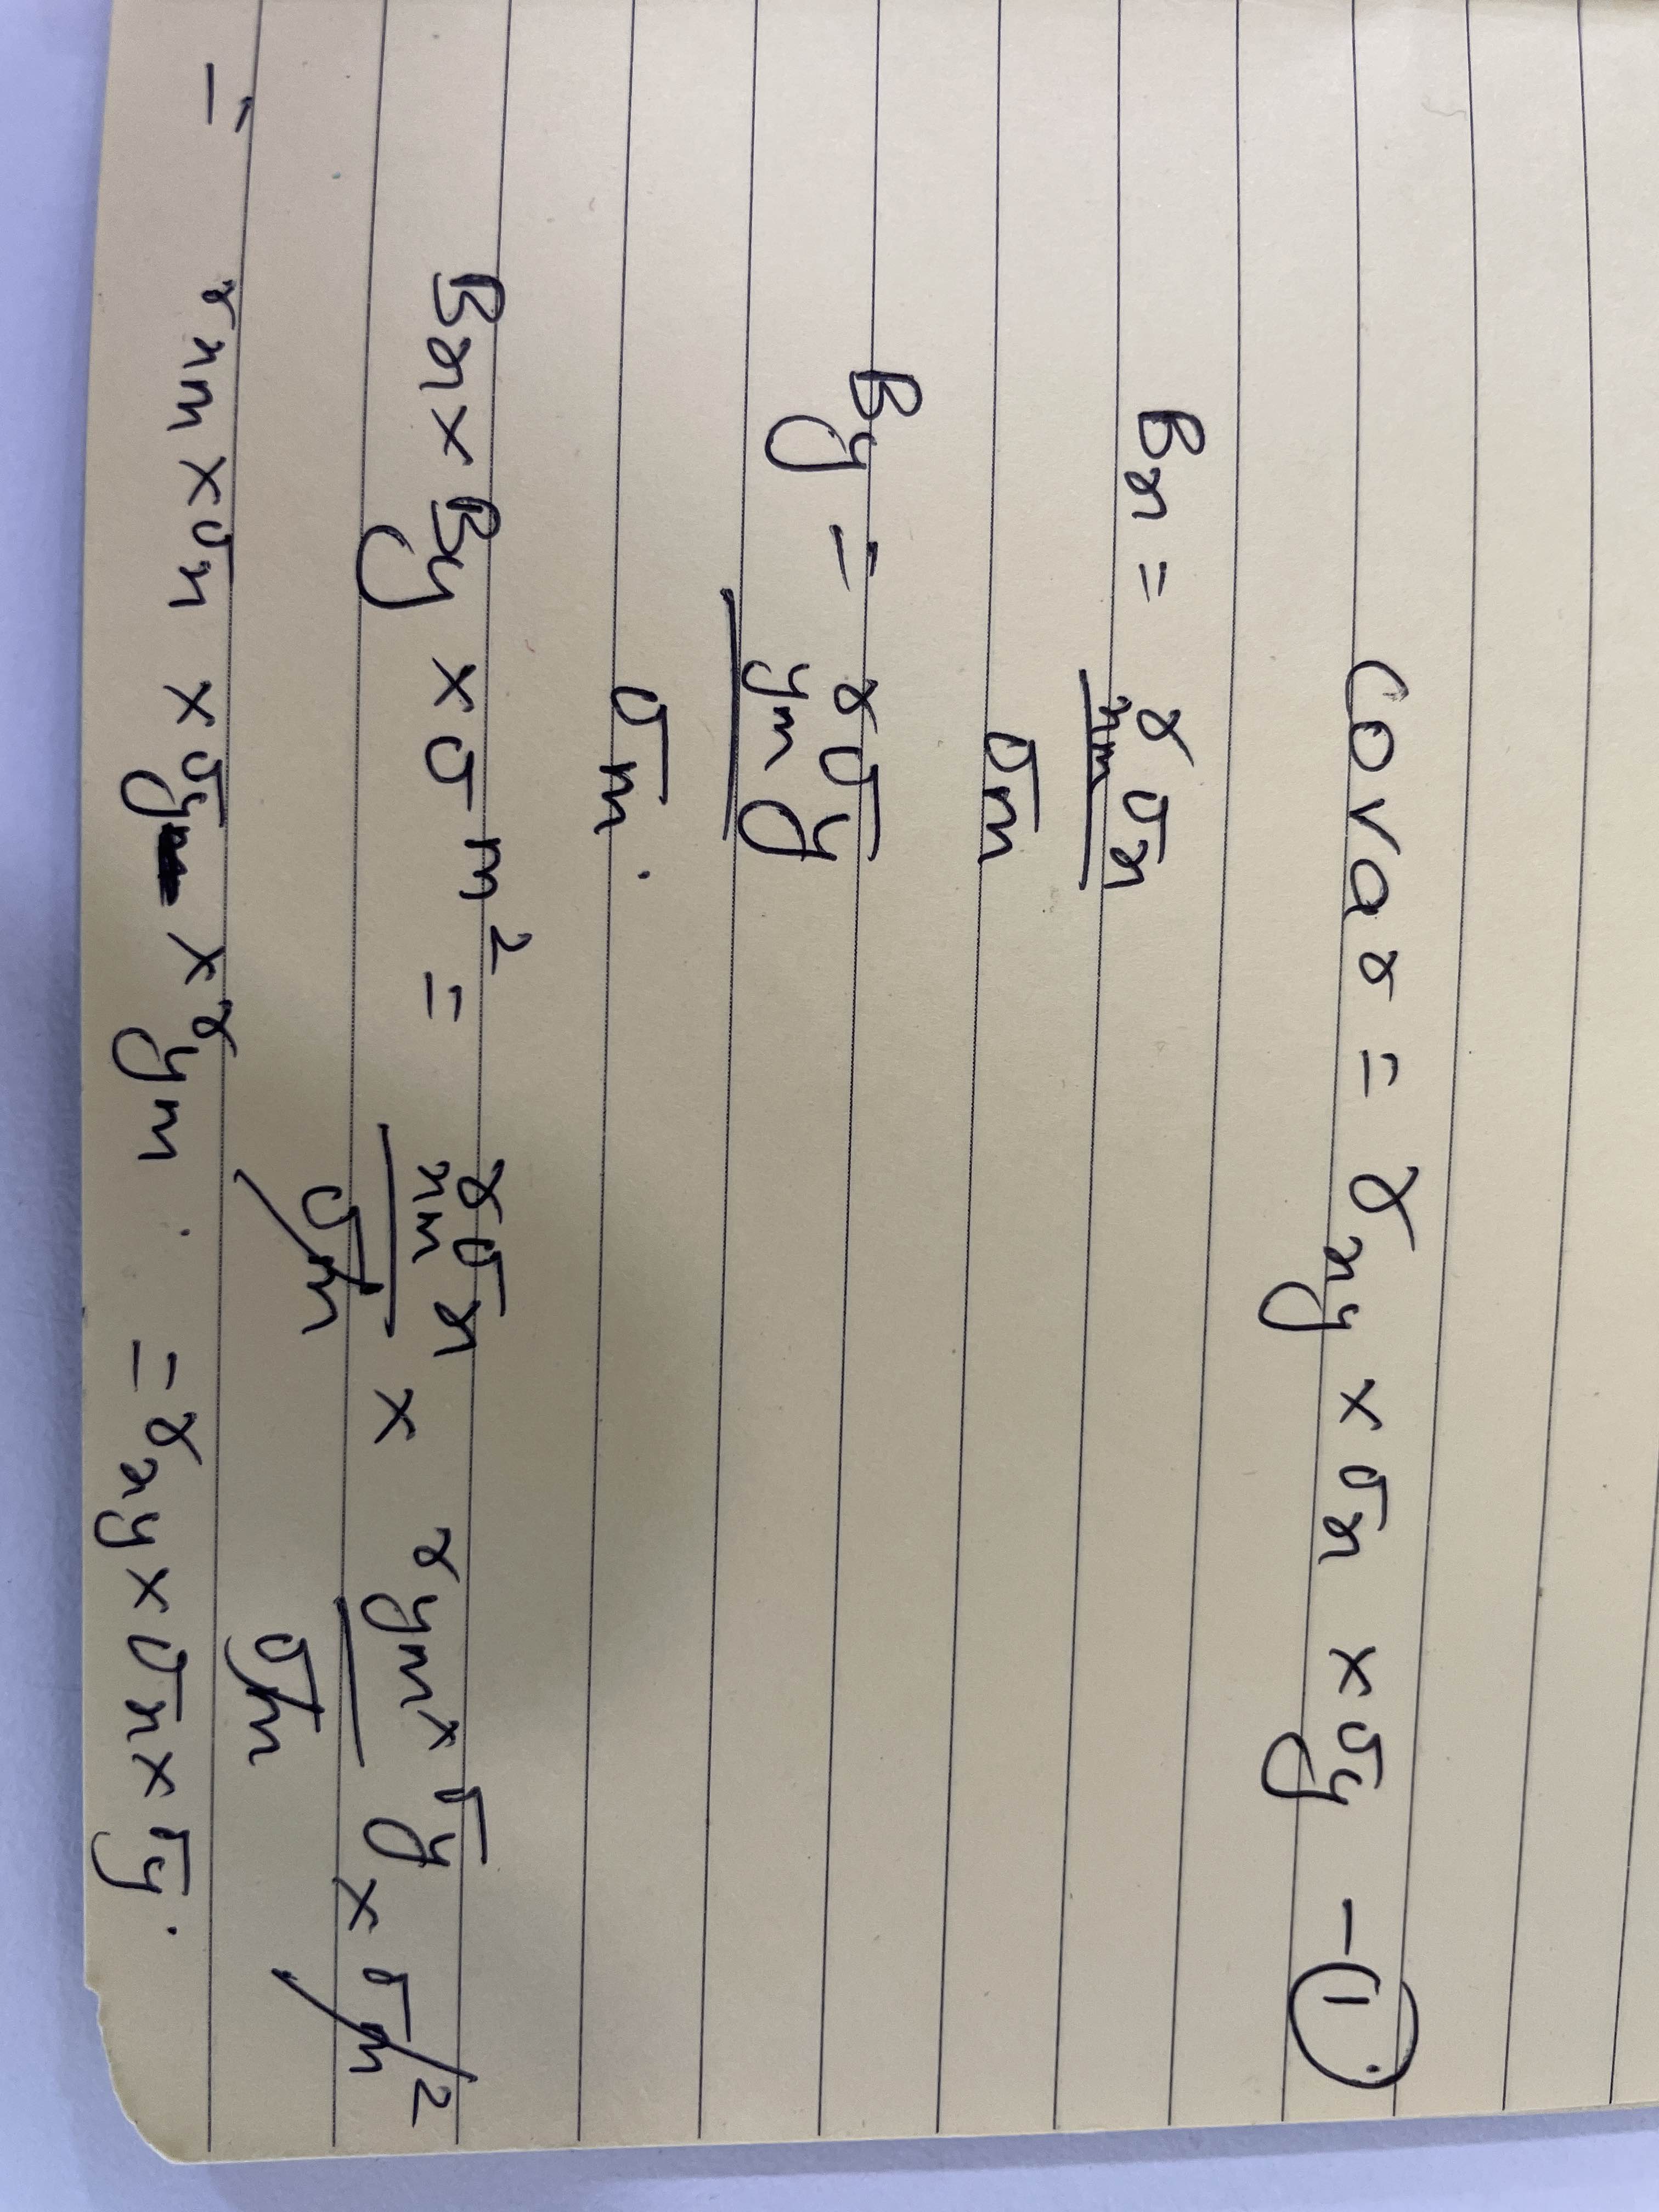 Covar = r xy × σx × σy - (1)
Bx = r xm σx
σm
By = r ym σy
σm.
Bx × By × σm² = r xm σx / σm × r ym × σy / σm × σm²
= r xm × σx × σy × r ym. = r xy × σx × σy.